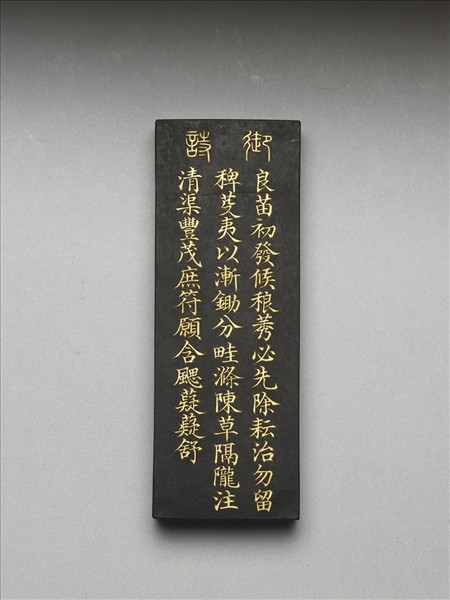 御詩
良苗初發候稂莠必先除耘治勿留
稗芟夷以漸鋤分畦滌陳草隔隴注
清渠豐茂庶符願含颸薿薿舒